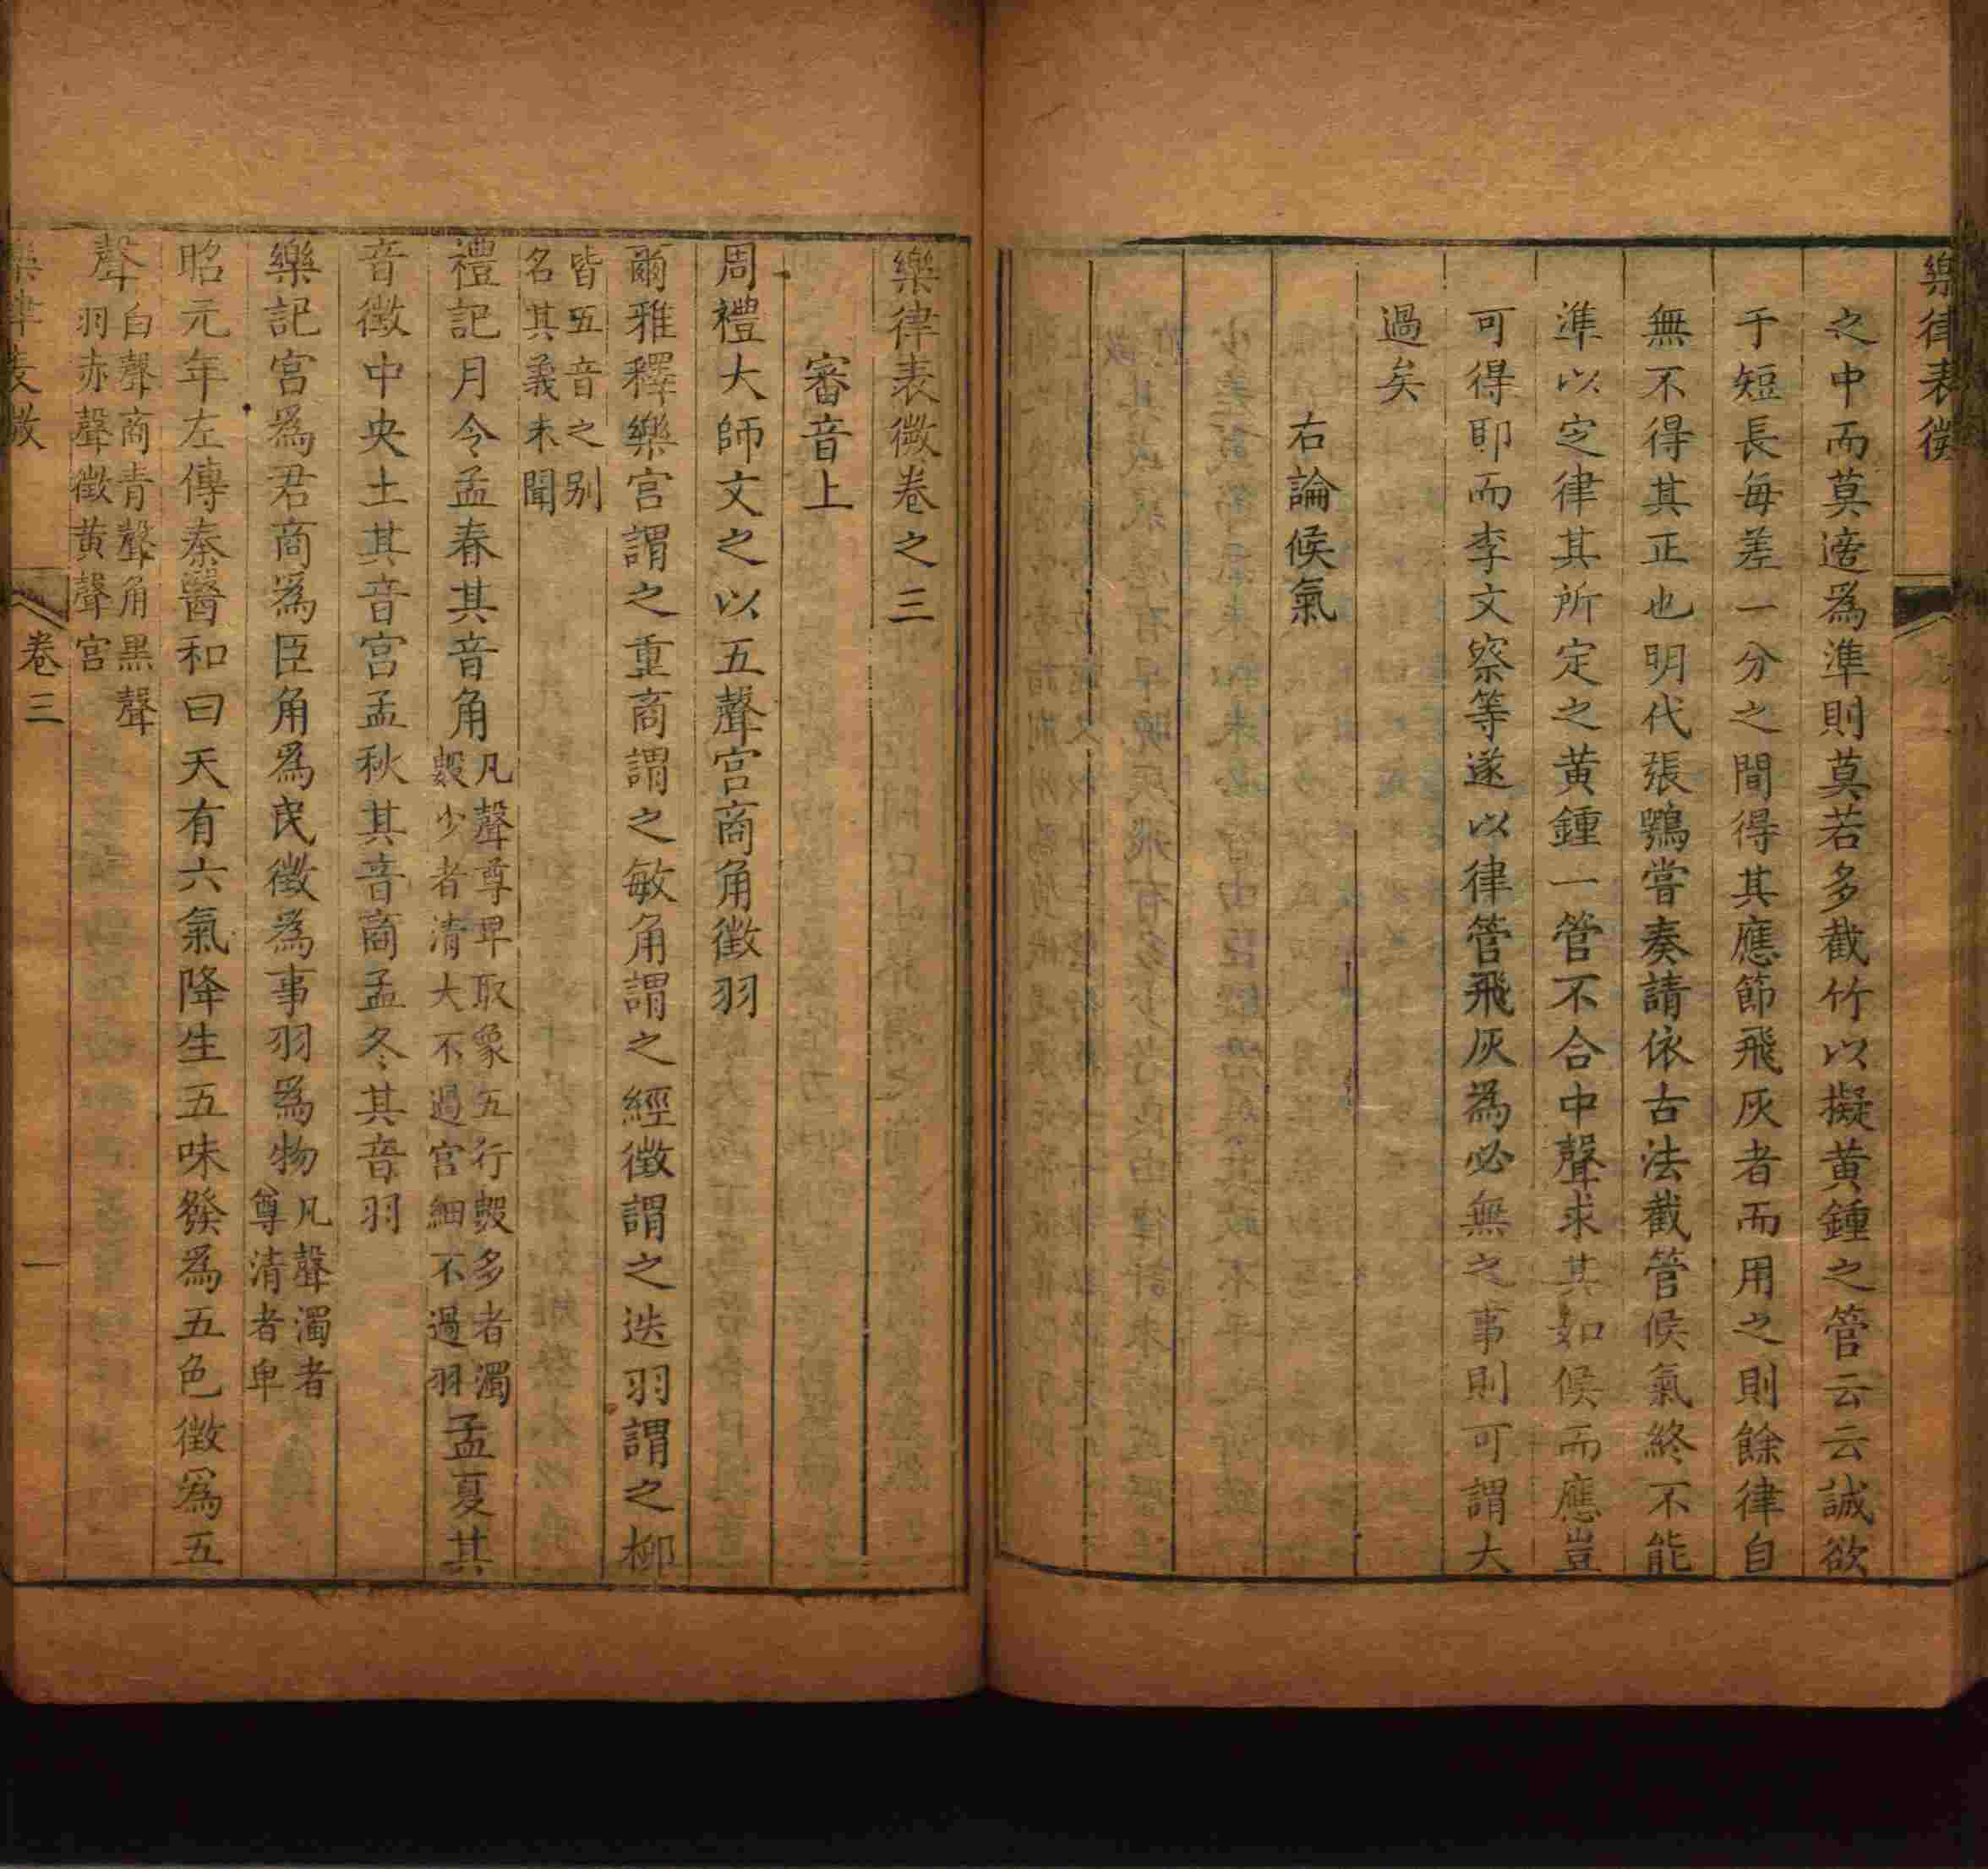 樂律表微
之中而莫適爲準則莫若多截竹以擬黃鍾之管云云誠欲
于短長每差一分之間得其應節飛灰者而用之則餘律自
無不得其正也明代張鶚嘗奏請依古法截管候氣終不能
準以定律其所定之黃鍾一管不合中聲求其如候而應豈
可得耶而李文察等遂以律管飛灰為必無之事則可謂大
過矣
右論候氣
樂律表微卷之三
審音上
周禮大師文之以五聲宮商角徵羽
爾雅釋樂宮謂之重商謂之敏角謂之經徵謂之迭羽謂之柳
皆五音之別
名其義未聞
禮記月令孟春其音角
凡聲尊卑取象五行數多者濁
數少者清大不過宮細不過羽
孟夏其
音徵中央土其音宮孟秋其音商孟冬其音羽
樂記宮爲君商爲臣角爲民徵爲事羽爲物
凡聲濁者
尊清者卑
昭元年左傳秦醫和曰天有六氣降生五味發爲五色徵爲五
聲
白聲商青聲角黑聲
羽赤聲徵黃聲宮
樂律表微
卷三
一